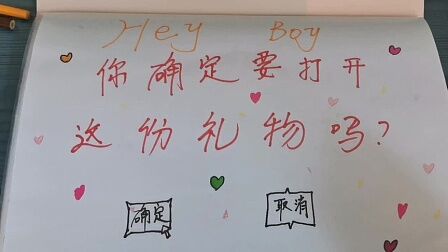 Hey Boy
你确定要打开
这份礼物吗?
确定 取消